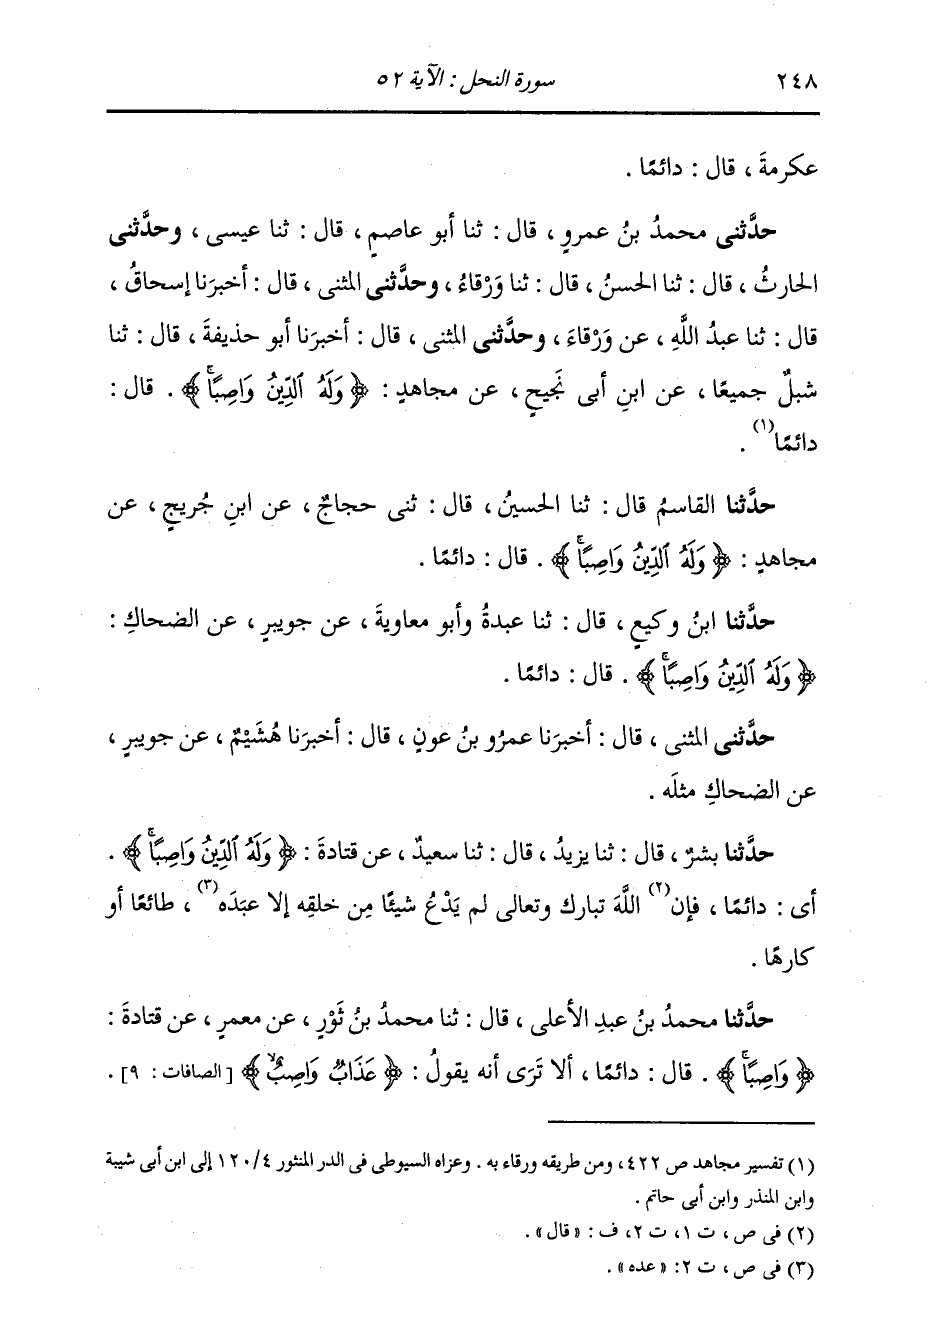 ٢٤٨ سورة النحل : الآية ٥٢
عكرمةَ ، قال : دائمًا .
حدَّثنى محمدُ بنُ عمرٍو ، قال : ثنا أبو عاصمٍ ، قال : ثنا عيسى ، وحدَّثنى
الحارثُ ، قال : ثنا الحسنُ ، قال : ثنا وَرْقاءُ ، وحدَّثنى المثنى ، قال : أخبرَنا إسحاقُ ،
قال : ثنا عبدُ اللَّهِ ، عن وَرْقاءَ ، وحدَّثنى المثنى ، قال : أخبرَنا أبو حذيفةَ ، قال : ثنا
شبلٌ جميعًا ، عن ابنِ أبى نَجيحٍ ، عن مجاهدٍ : ﴿ وَلَهُ ٱلدِّينُ وَاصِبًاۚ ﴾ . قال :
دائمًا(١) .
حدَّثنا القاسمُ قال : ثنا الحسينُ ، قال : ثنى حجاجٌ ، عن ابنِ جُريجٍ ، عن
مجاهدٍ : ﴿ وَلَهُ ٱلدِّينُ وَاصِبًاۚ ﴾ . قال : دائمًا .
حدَّثنا ابنُ وكيعٍ ، قال : ثنا عبدةُ وأبو معاويةَ ، عن جويبرٍ ، عن الضحاكِ :
﴿ وَلَهُ ٱلدِّينُ وَاصِبًاۚ ﴾ . قال : دائمًا .
حدَّثنى المثنى ، قال : أخبرَنا عمرُو بنُ عونٍ ، قال : أخبرَنا هُشَيْمٌ ، عن جويبرٍ ،
عن الضحاكِ مثلَه .
حدَّثنا بشرٌ ، قال : ثنا يزيدُ ، قال : ثنا سعيدٌ ، عن قتادةَ : ﴿ وَلَهُ ٱلدِّينُ وَاصِبًاۚ ﴾ .
أى : دائمًا ، فإن(٢) اللَّهَ تبارك وتعالى لم يَدَعْ شيئًا مِن خلقِه إلا عبَدَه(٣) ، طائعًا أو
كارهًا .
حدَّثنا محمدُ بنُ عبدِ الأعلى ، قال : ثنا محمدُ بنُ ثَوْرٍ ، عن معمرٍ ، عن قتادةَ :
﴿ وَاصِبًاۚ ﴾ . قال : دائمًا ، ألا تَرَى أنه يقولُ : ﴿ عَذَابٌ وَاصِبٌۙ ﴾ [ الصافات : ٩] .
(١) تفسير مجاهد ص ٤٢٢، ومن طريقه ورقاء به . وعزاه السيوطى فى الدر المنثور ١٢٠/٤ إلى ابن أبى شيبة
وابن المنذر وابن أبى حاتم .
(٢) فى ص ، ت ١، ت ٢، ف : « قال » .
(٣) فى ص ، ت ٢: « عده » .